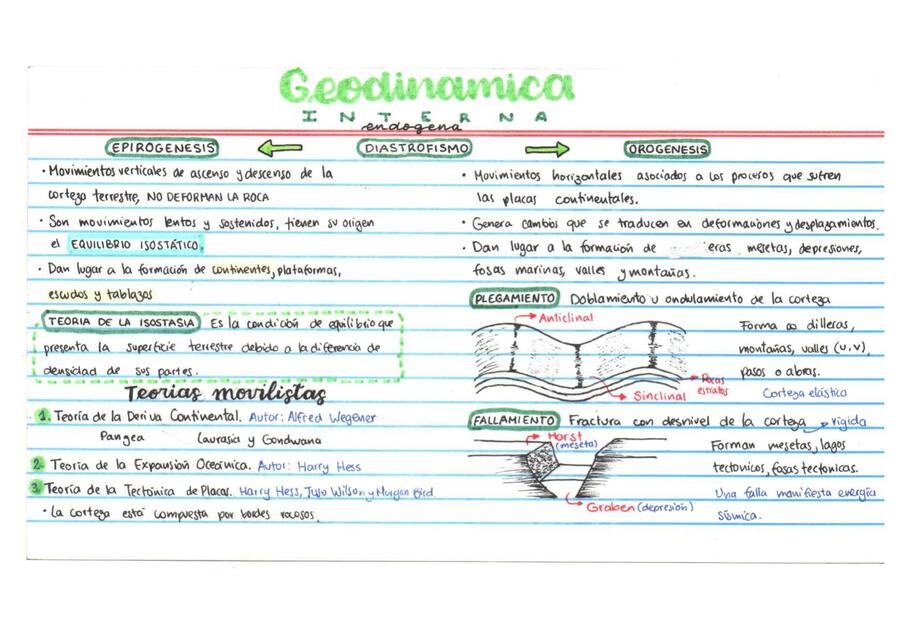 Geodinamica
INTERNA
endogena
EPIROGENESIS
DIASTROFISMO
OROGENESIS
• Movimientos verticales de ascenso y descenso de la
corteza terrestre, NO DEFORMAN LA ROCA
• Son movimientos lentos y sostenidos, tienen su origen
el EQUILIBRIO ISOSTÁTICO.
• Dan lugar a la formación de continentes, plataformas,
escudos y tablazos
TEORIA DE LA ISOSTASIA Es la condición de equilibrio que
presenta la superficie terrestre debido a la diferencia de
densidad de sus partes.
Teorias movilistas
1. Teoría de la Deriva Continental. Autor: Alfred Wegener
Pangea Laurasia y Gondwana
2. Teoria de la Expansión Oceánica. Autor: Harry Hess
3. Teoría de la Tectónica de Placas. Harry Hess, Tuzo Wilson y Morgan Bird.
• La corteza está compuesta por bordes rocosos.
• Movimientos horizontales asociados a los procesos que sufren
las placas continentales.
• Genera cambios que se traducen en deformaciones y desplazamientos.
• Dan lugar a la formación de eras mesetas, depresiones,
fosas marinas, valles y montañas.
PLEGAMIENTO Doblamiento u ondulamiento de la corteza
Anticlinal
Sinclinal
Rocas
estratos
Forma dilleras,
montañas, valles (u,v),
pasos o abras.
Corteza elástica
FALLAMIENTO Fractura con desnivel de la corteza rígida
Horst
(meseta)
Graben (depresión)
Forman mesetas, lagos
tectonicos, fosas tectonicas.
Una falla manifiesta energía
sísmica.